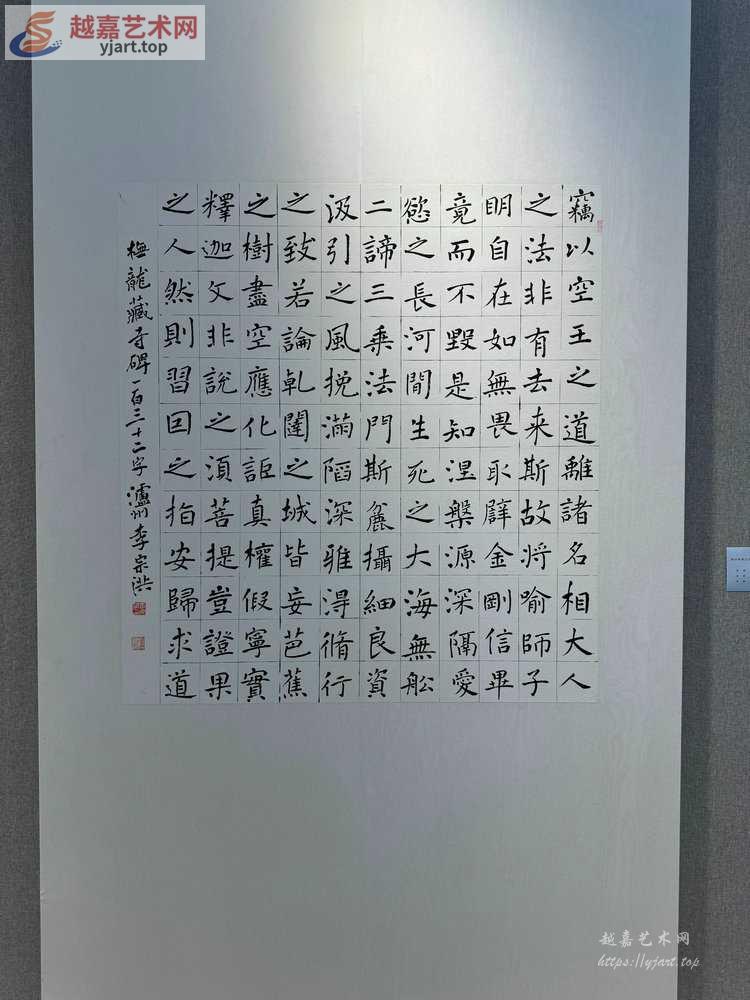 越嘉艺术网
yjart.top
竊以空王之道離諸名相大人
之法非有去来斯故将喻師子
明自在如無畏取辟金剛信畢
竟而不毀是知涅槃源深隔愛
慾之長河間生死之大海無舩
二諦三乗法門斯麁攝細良資
汲引之風挽滿陷深雅得脩行
之致若論乹闥之城皆妄芭蕉
之樹盡空應化詎真權假寧實
釋迦文非說之湏菩提豈證果
之人然則習因之指安歸求道
橅龍藏寺碑一百三十二字 瀘州李宗洪
越嘉艺术网
https://yjart.top